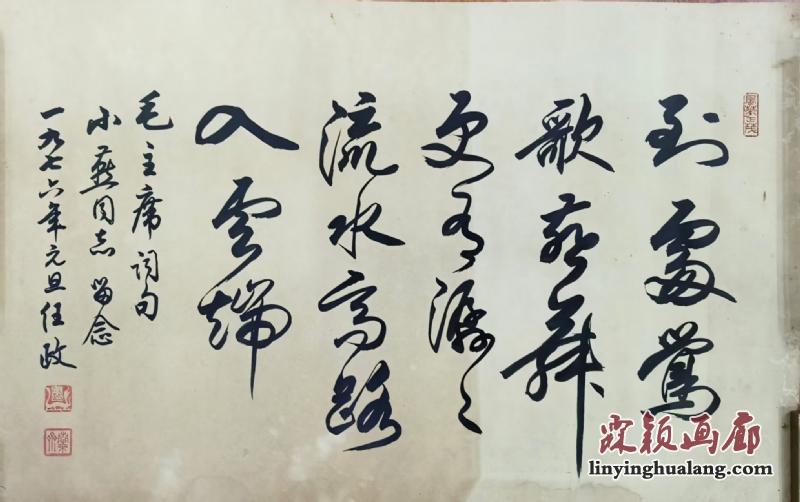 到處鶯
歌燕舞
更有潺々
流水高路
入雲端
毛主席词句
小燕同志留念
一九七六年元旦任政
霖颖画廊
linyinghualang.com